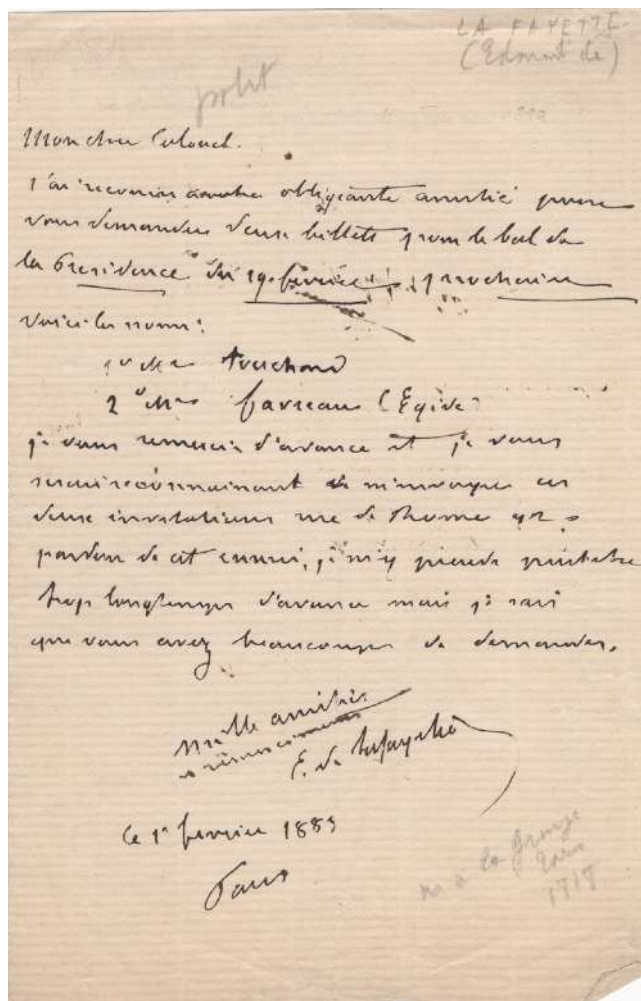 LA FAYETTE
(Edmont de)
polit
Mon cher Colonel.
J'ai recours à votre obligeante amitié pour
vous demander deux billets pour le bal de
la Présidence du 19 février prochain
Voici les noms:
1º Mr
2º Mr Favreau (Egide)
je vous remercie d'avance et je vous
serais reconnaissant de m'envoyer ces
deux invitations rue de Rome
pardon de cet ennui, je m'y prends peut être
trop longtemps d'avance mais je sais
que vous avez beaucoup de demandes.
Mille amitiés
et remerciements
E. de Lafayette
le 1er février 1883
Paris
né à la Grange
1818